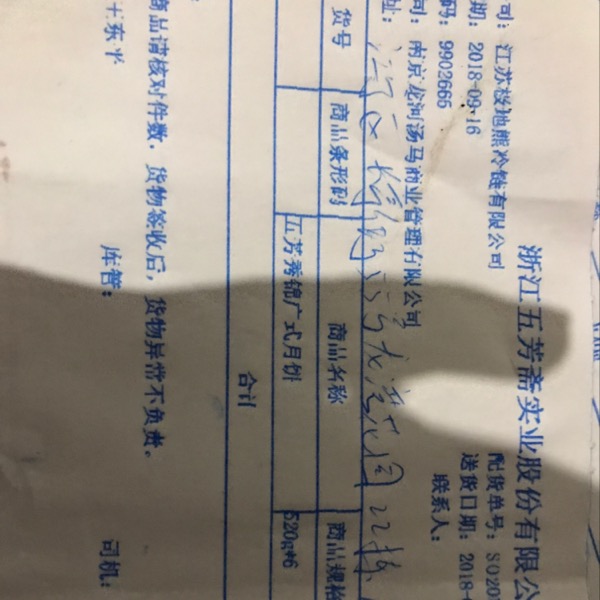 浙江五芳斋实业股份有限公
司：江苏极地熊冷链有限公司
配货单号：SO207
期：2018-09-16
送货日期：2018-
码：9902666
联系人：
司：南京龙河汤马商业管理有限公司
址：
货号 商品条形码 商品名称 商品规格
五芳秀锦广式月饼 520g*6
合计
商品请核对件数，货物签收后，货物异常不负责。
王东平 库管： 司机：